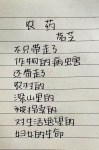 农药
不只带走了
作物的病虫害
还带走了
农村的
深山里的
对生活绝望的
妇女的生命